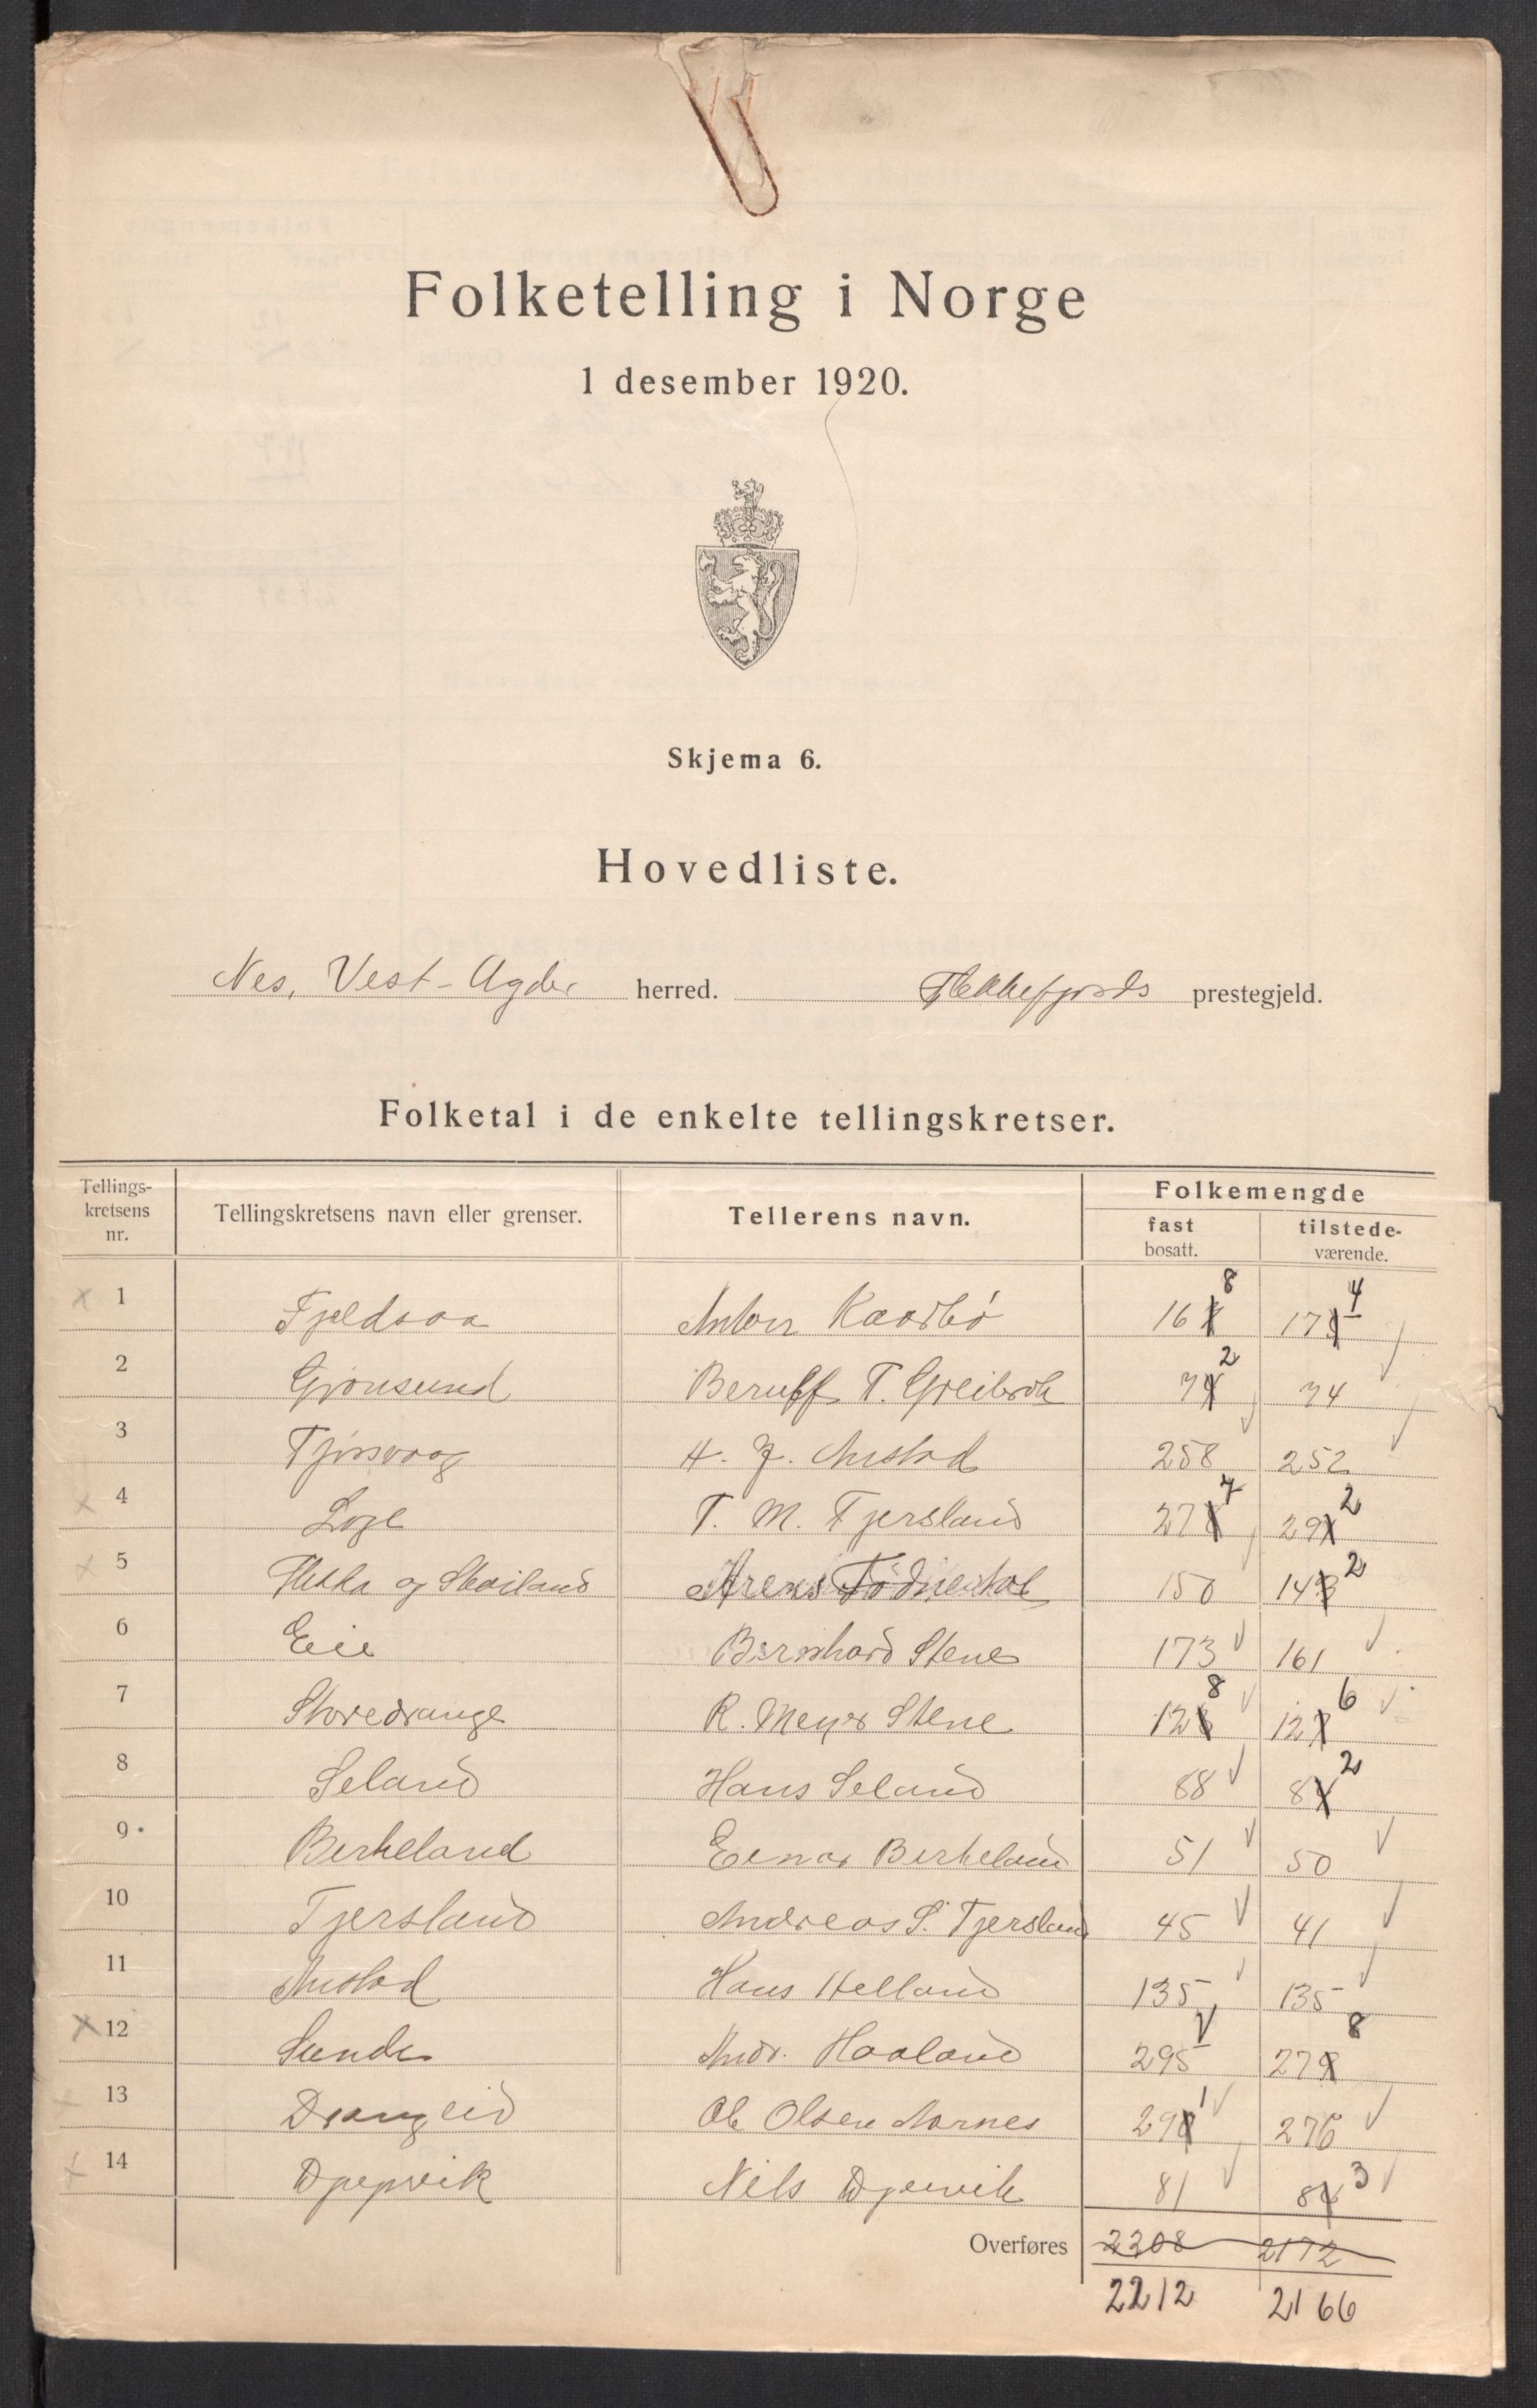 Folketelling i Norge
1 desember 1920.
Skjema 6.
Hovedliste.
Nes, Vest-Agder herred. Flekkefjords prestegjeld.
Folketal i de enkelte tellingskretser.
Tellings-kretsens nr. Tellingskretsens navn eller grenser. Tellerens navn. Folkemengde fast bosatt. tilstede-værende.
1 Fjeldsaa Anton 168 174
2 Grønsund T. Greibrok 72 74
3 Tjørsvaag H. J. Austad 258 252
4 Loge T. M. Tjersland 277 292
5 og Skailand Arens Tødnestøl 150 142
6 Eie Bernhard Stene 173 161
7 Storedrange R. Meyer Stene 128 126
8 Seland Hans Seland 88 82
9 Birkeland Einar Birkeland 51 50
10 Tjersland Andreas S. Tjersland 45 41
11 Austad Hans Helland 135 135
12 Sunde Andr. Haaland 295 278
13 Drangeid Ole Olsen Aarnes 291 276
14 Djupvik Nils Djupvik 81 83
Overføres 2208 2172
2212 2166